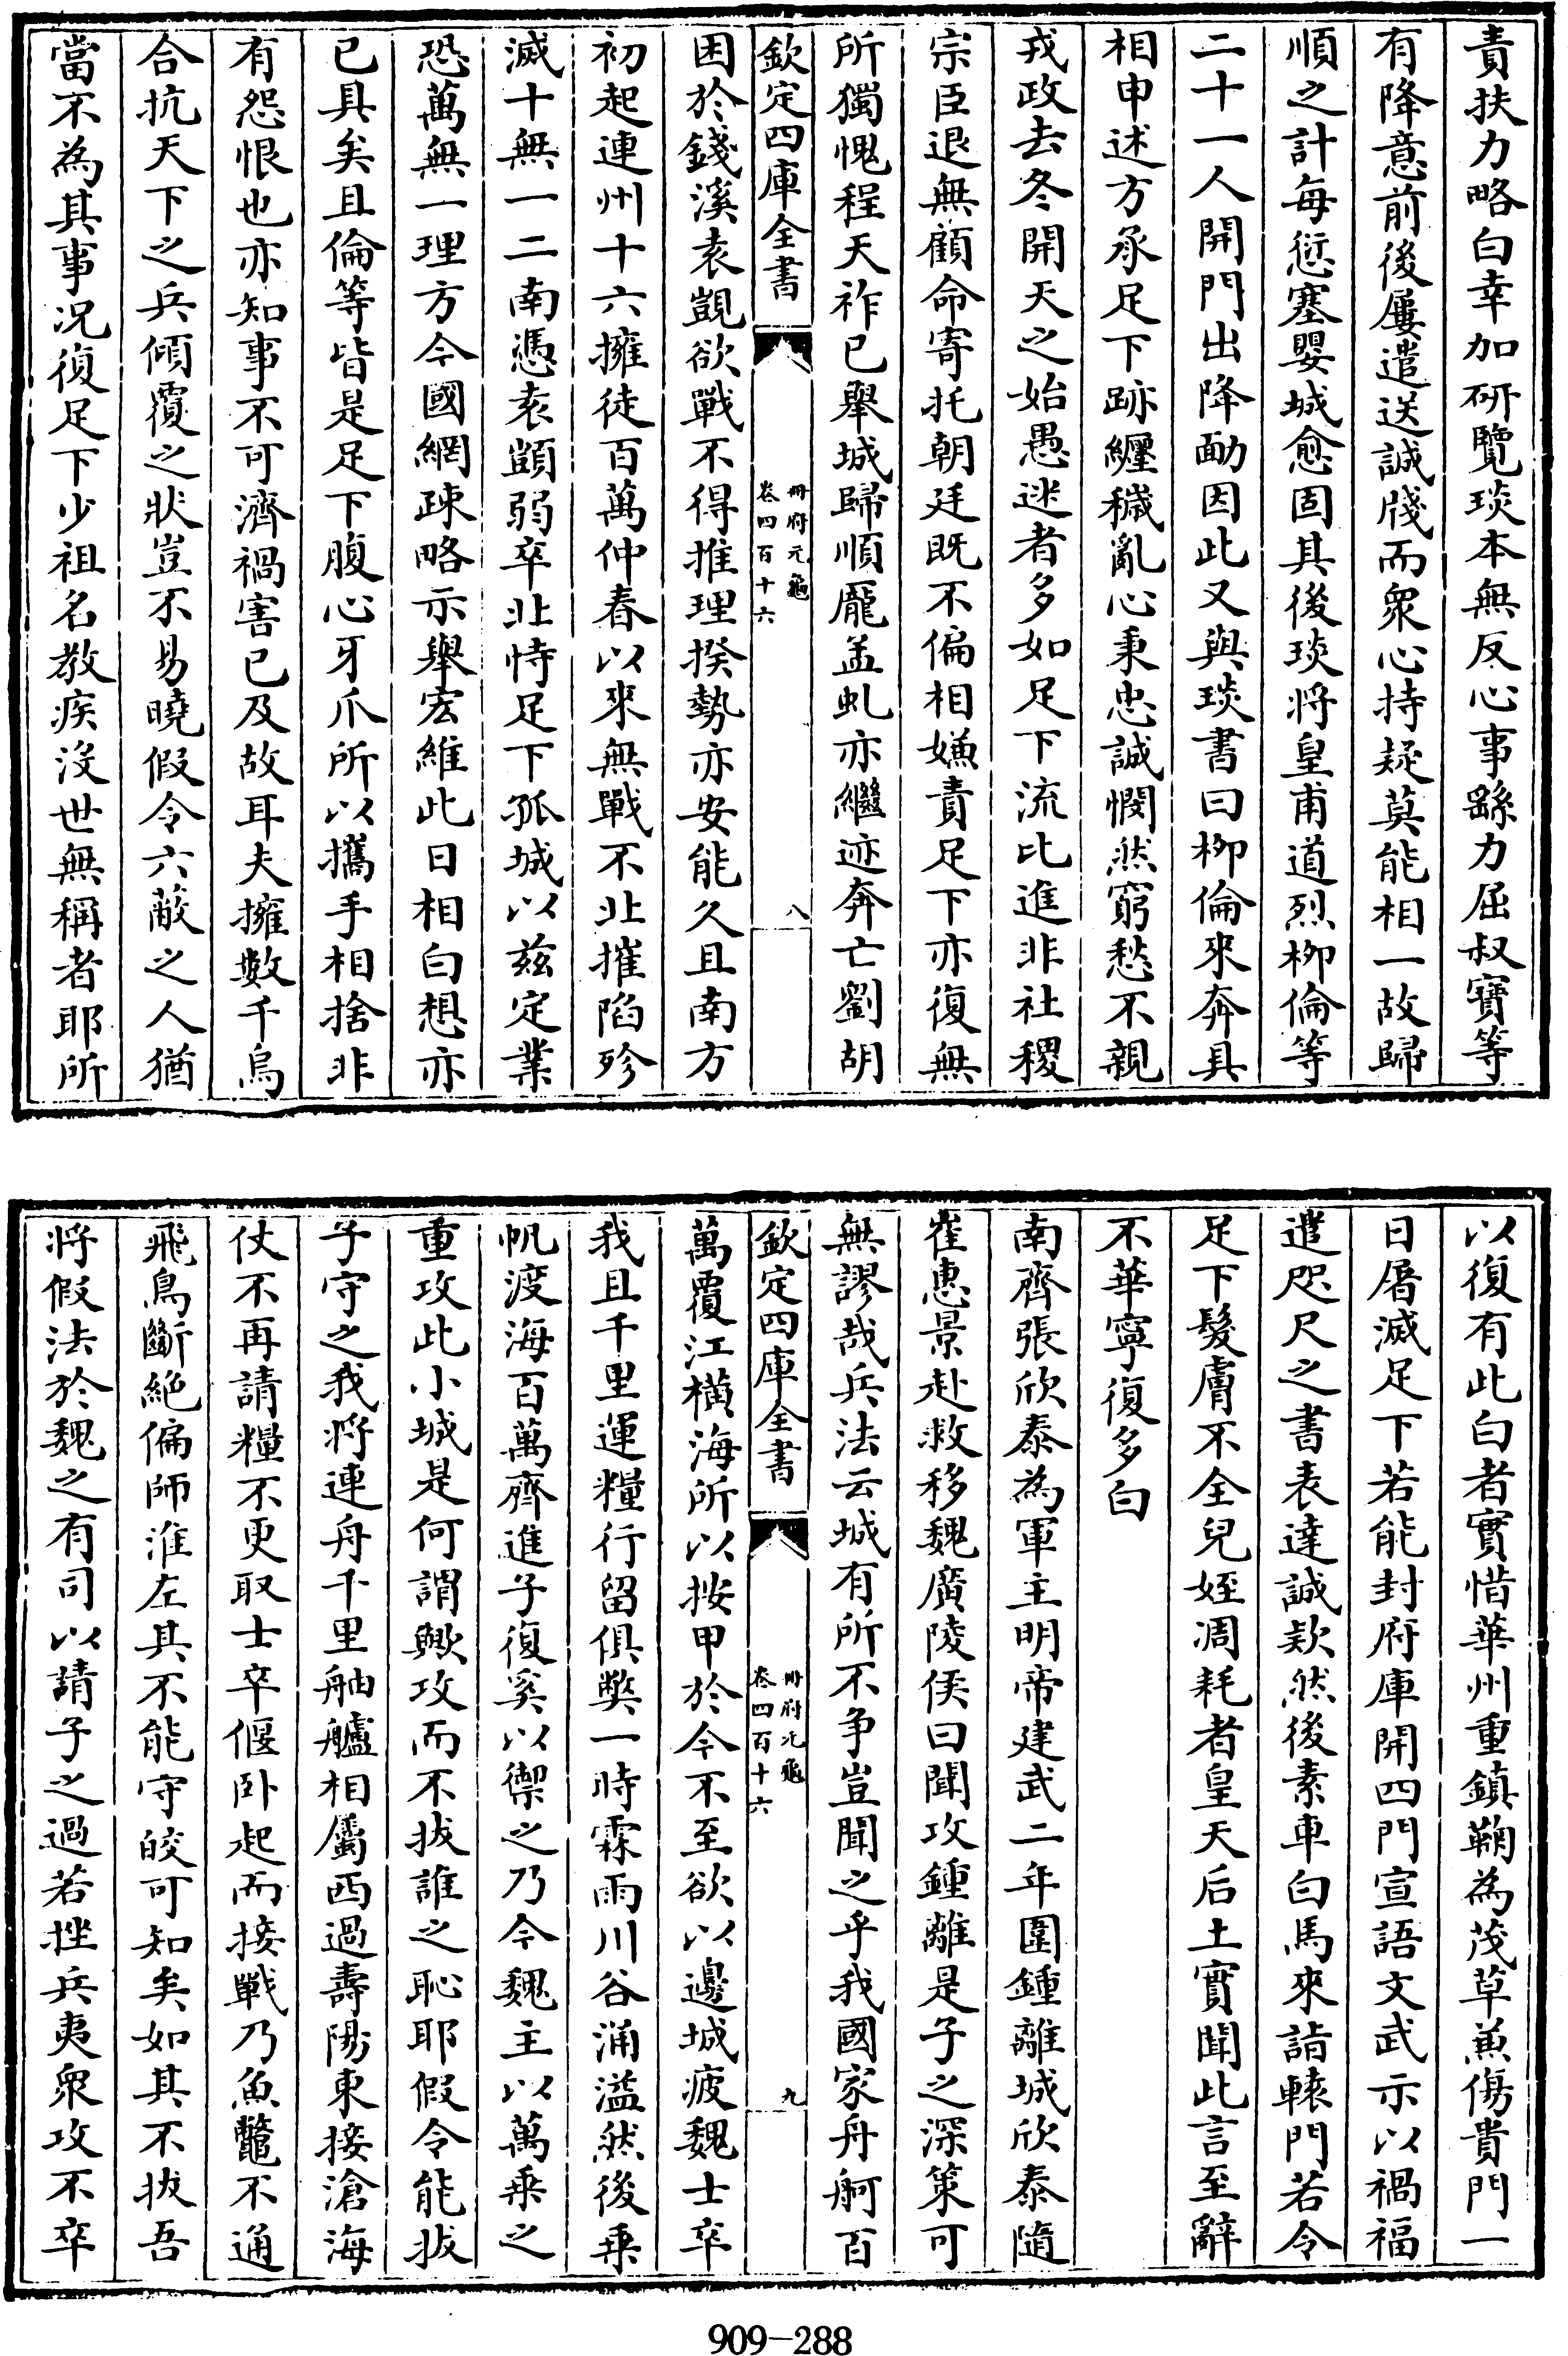 責扶力略白幸加研覽琰本無反心事繇力屈叔寶等
有降意前後屢遣送誠牋而衆心持疑莫能相一故歸
順之計每愆塞嬰城愈固其後琰將皇甫道烈柳倫等
二十一人開門出降勔因此又與琰書曰柳倫來奔具
相申述方承足下跡纏穢亂心秉忠誠惘然窮愁不親
戎政去冬開天之始愚迷者多如足下流比進非社稷
宗臣退無顧命寄托朝廷既不偏相嫌責足下亦復無
所獨愧程天祚已舉城歸順龎孟虬亦繼迹奔亡劉胡
欽定四庫全書
冊府元龜
卷四百十六
八
困於錢溪袁覬欲戰不得推理揆勢亦安能久且南方
初起連州十六擁徒百萬仲春以來無戰不北摧陷殄
滅十無一二南憑袁顗弱卒北恃足下孤城以兹定業
恐萬無一理方今國網疎略示舉宏維此日相白想亦
已具矣且倫等皆是足下腹心牙爪所以攜手相捨非
有怨恨也亦知事不可濟禍害已及故耳夫擁數千烏
合抗天下之兵傾覆之狀豈不易曉假令六蔽之人猶
當不為其事况復足下少祖名教疾沒世無稱者耶所
以復有此白者實惜華州重鎮鞠為茂草兼傷貴門一
日屠滅足下若能封府庫開四門宣語文武示以禍福
遣咫尺之書表達誠欵然後素車白馬來詣轅門若令
足下髮膚不全兒姪凋耗者皇天后土實聞此言至辭
不華寧復多白
南齊張欣泰為軍主明帝建武二年圍鍾離城欣泰隨
崔惠景赴救移魏廣陵侯曰聞攻鍾離是子之深策可
無謬哉兵法云城有所不争豈聞之乎我國家舟舸百
欽定四庫全書
冊府元龜
卷四百十六
九
萬覆江横海所以按甲於今不至欲以邊城疲魏士卒
我且千里運糧行留俱弊一時霖雨川谷涌溢然後乗
帆渡海百萬齊進子復奚以禦之乃令魏主以萬乗之
重攻此小城是何謂歟攻而不拔誰之恥耶假令能拔
子守之我將連舟千里舳艫相屬西過壽陽東接滄海
仗不再請糧不更取士卒偃卧起而接戰乃魚鼈不通
飛鳥斷絶偏師淮左其不能守皎可知矣如其不拔吾
將假法於魏之有司以請子之過若挫兵夷衆攻不卒
909-288